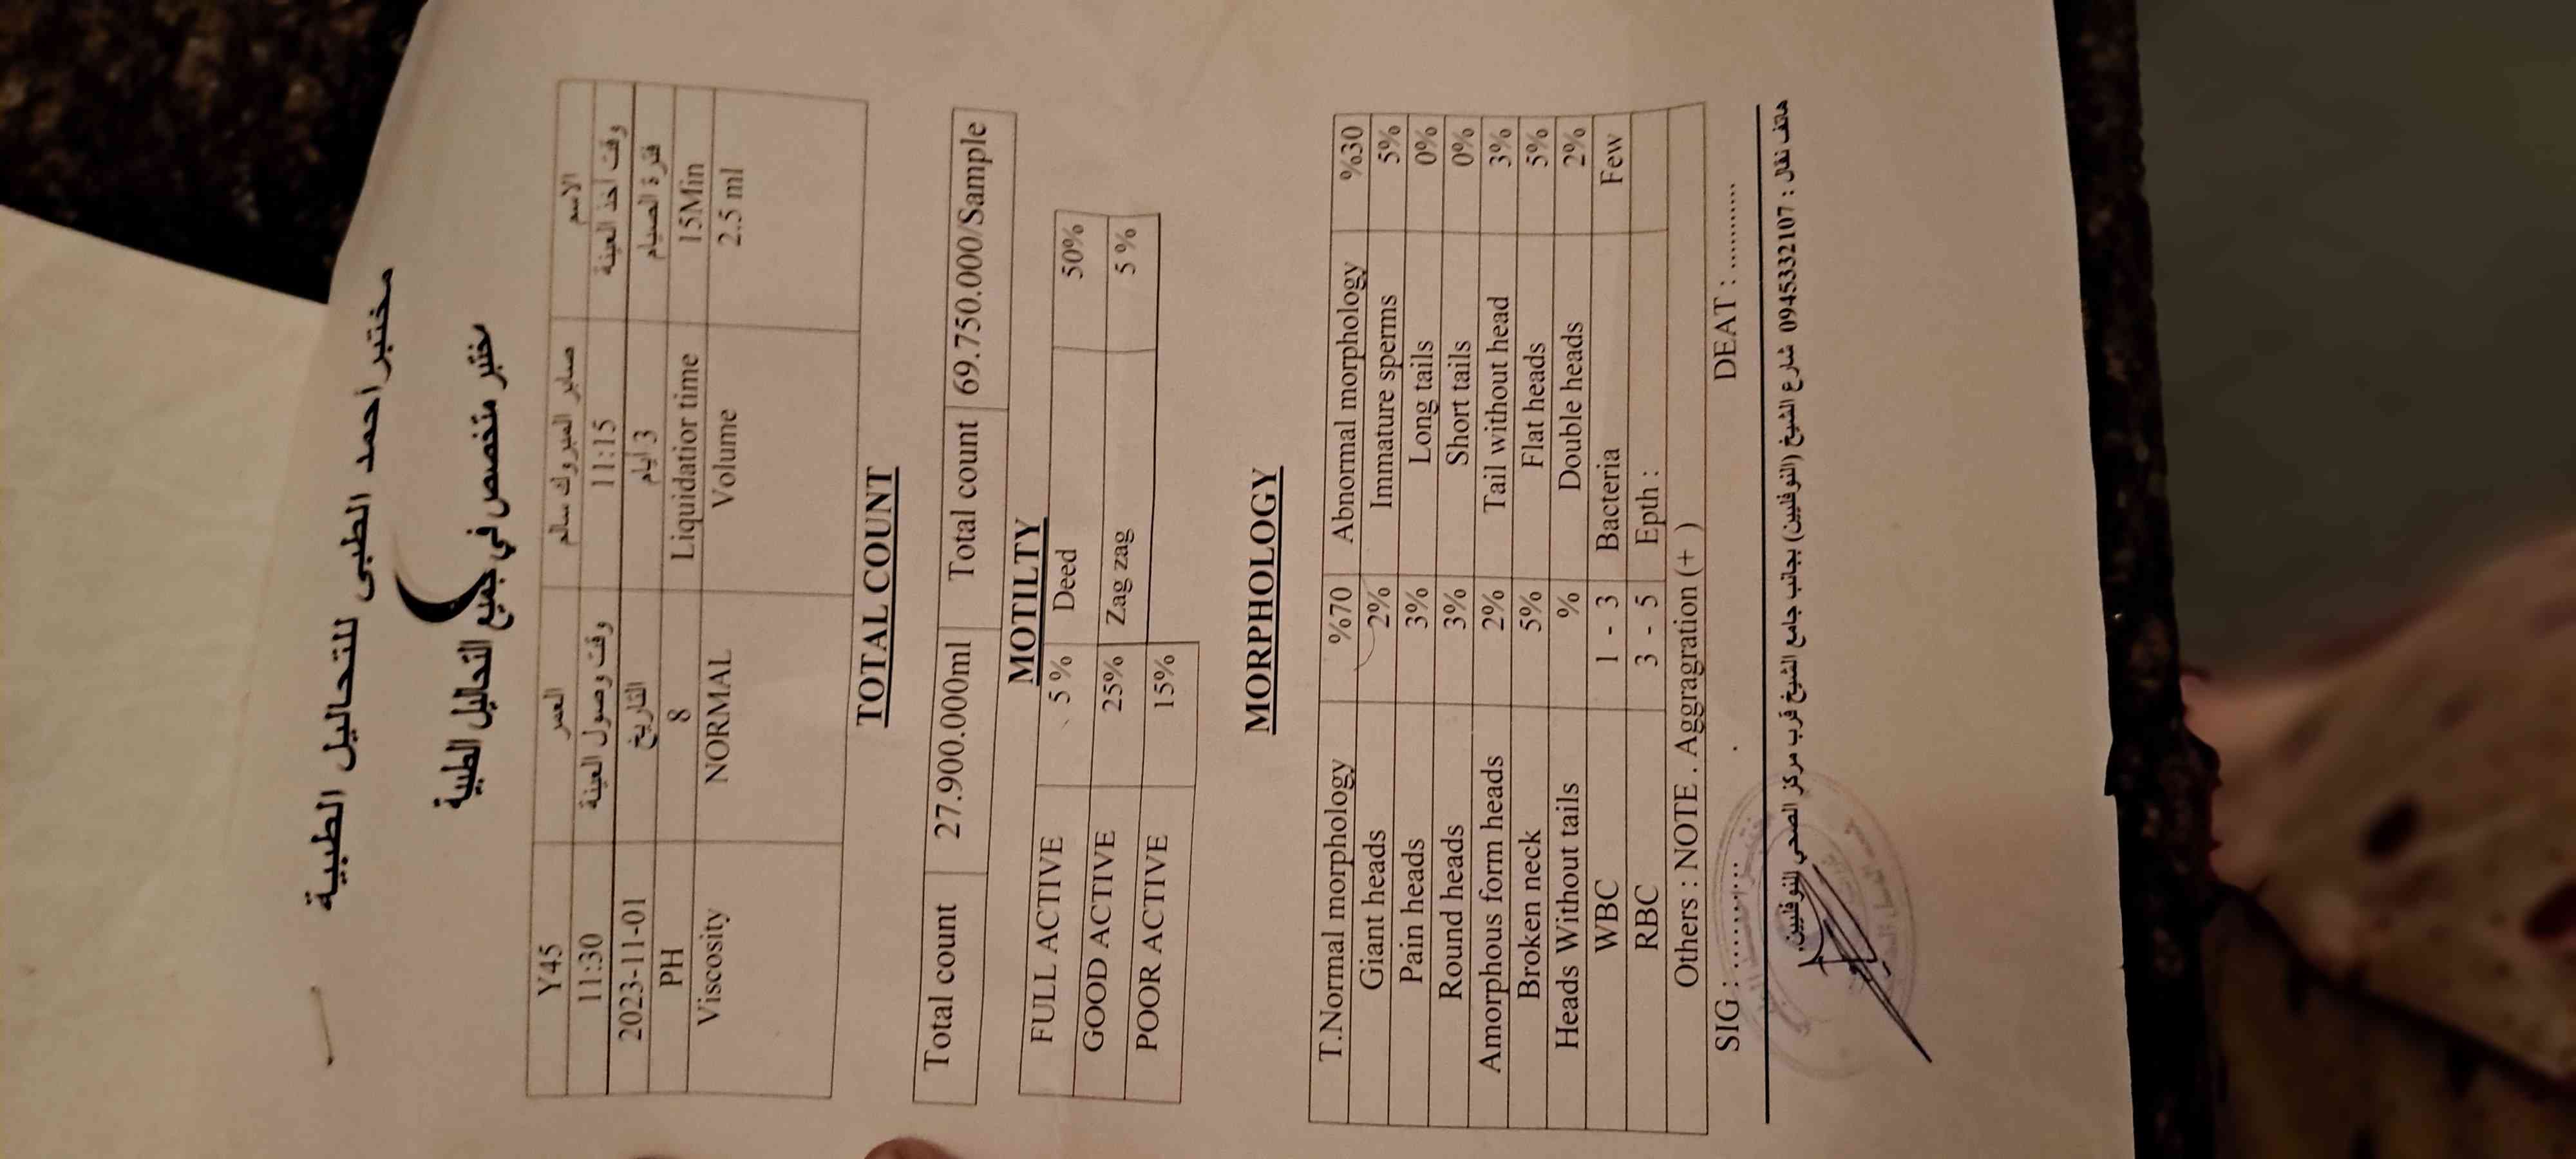 مختبر أحمد الطبى للتحاليل الطبية
مختبر متخصص في جميع التحاليل الطبية
الاسم صابر المبروك سالم العمر Y45
وقت أخذ العينة 11:15 وقت وصول العينة 11:30
فترة الصيام 3 ايام التاريخ 2023-11-01
PH 8 Liquidatior time 15Min
Viscosity NORMAL Volume 2.5 ml
TOTAL COUNT
Total count 27.900.000ml Total count 69.750.000/Sample
MOTILTY
FULL ACTIVE 5 % Deed 50%
GOOD ACTIVE 25% Zag zag 5 %
POOR ACTIVE 15%
MORPHOLOGY
T.Normal morphology %70 Abnormal morphology %30
Giant heads 2% Immature sperms 5%
Pain heads 3% Long tails 0%
Round heads 3% Short tails 0%
Amorphous form heads 2% Tail without head 3%
Broken neck 5% Flat heads 5%
Heads Without tails % Double heads 2%
WBC 1 - 3 Bacteria Few
RBC 3 - 5 Epth :
Others : NOTE . Aggragration (+ )
SIG : ............ DEAT : ...........
هاتف نقال : 0945332107 شارع الشيخ (النوفليين) بجانب جامع الشيخ قرب مركز الصحي النوفليين.